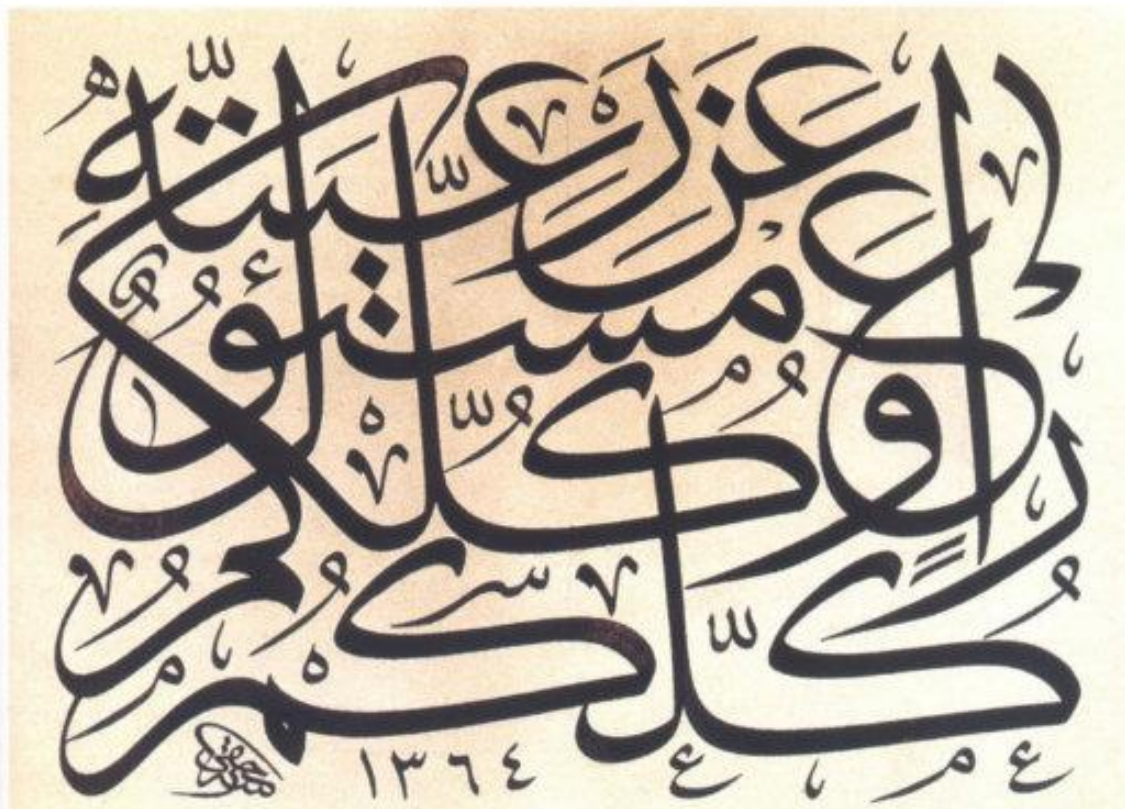 كُلُّكُمْ رَاعٍ
وَكُلُّكُمْ مَسْئُولٌ
عَنْ رَعِيَّتِهِ
١٣٦٤